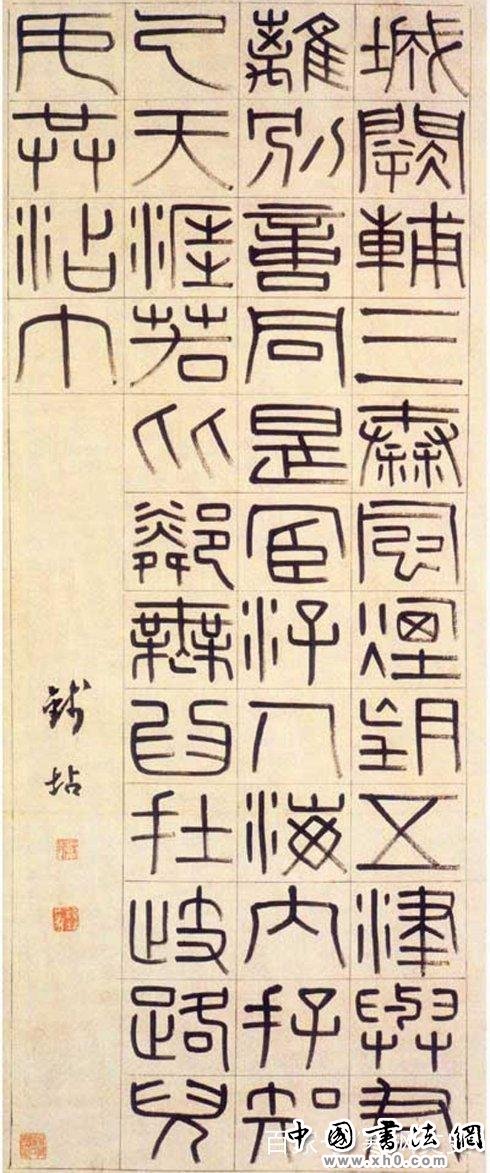 城闕輔三秦風煙望五津與君
離別意同是宦游人海內存知
己天涯若比鄰無為在歧路兒
女共沾巾
錢坫
中國書法網
www.xh0.com